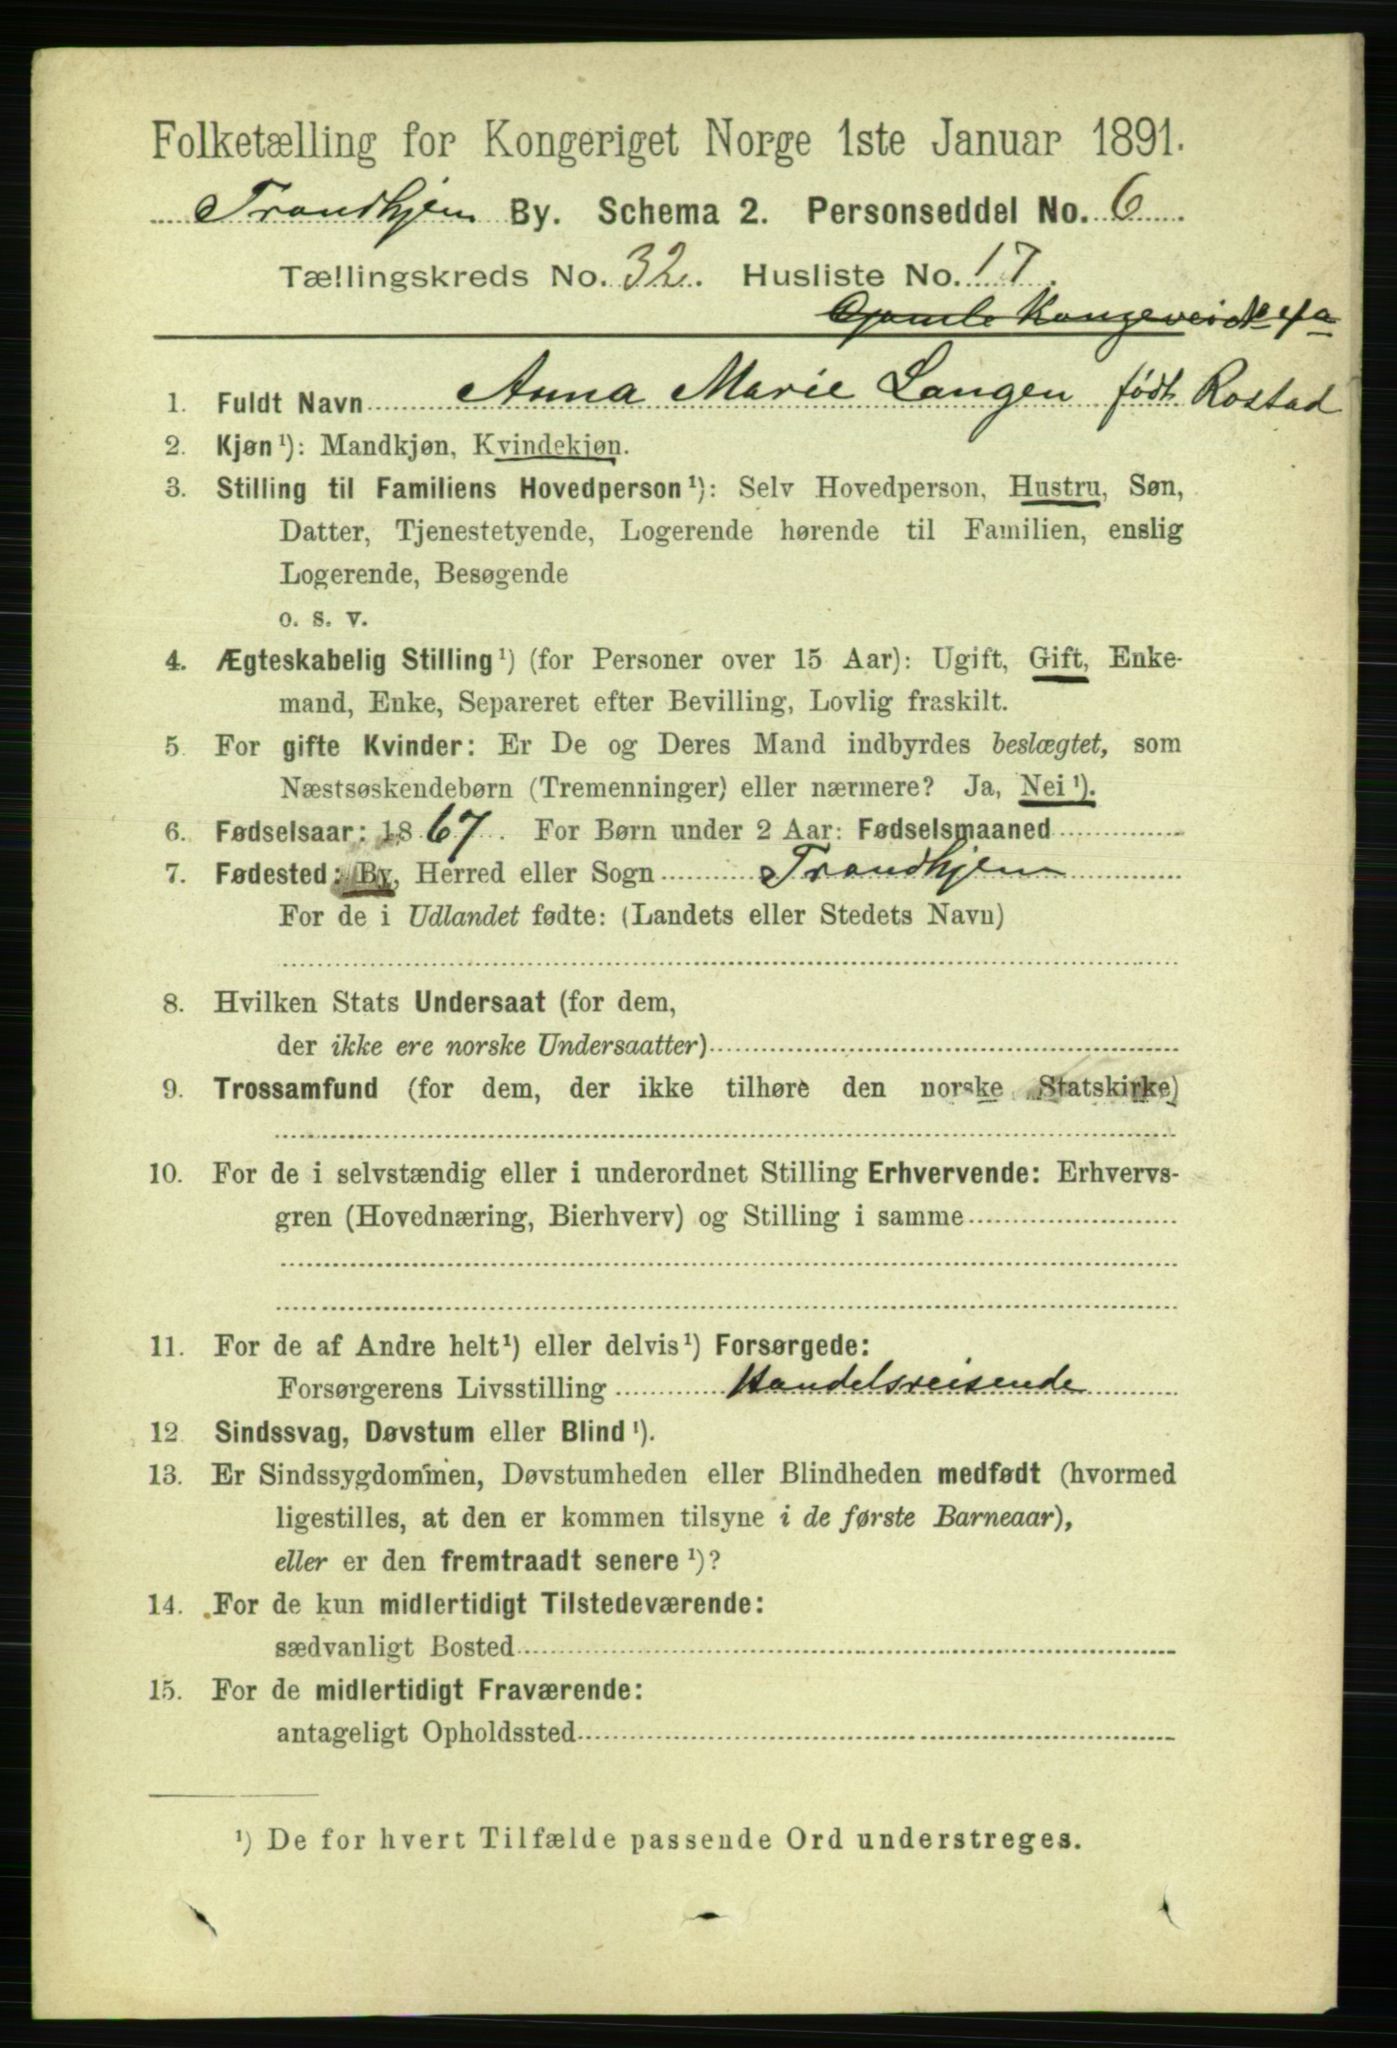 Folketælling for Kongeriget Norge 1ste Januar 1891.
Trondhjem By. Schema 2. Personseddel No. 6
Tællingskreds No. 32. Husliste No. 17.
Gamle Kongevei No 4a
1. Fuldt Navn Anna Marie Langen født Rostad
2. Kjøn¹): Mandkjøn, Kvindekjøn.
3. Stilling til Familiens Hovedperson¹): Selv Hovedperson, Hustru, Søn,
Datter, Tjenestetyende, Logerende hørende til Familien, enslig
Logerende, Besøgende
o. s. v.
4. Ægteskabelig Stilling¹) (for Personer over 15 Aar): Ugift, Gift, Enke-
mand, Enke, Separeret efter Bevilling, Lovlig fraskilt.
5. For gifte Kvinder: Er De og Deres Mand indbyrdes beslægtet, som
Næstsøskendebørn (Tremenninger) eller nærmere? Ja, Nei¹).
6. Fødselsaar: 1867. For Børn under 2 Aar: Fødselsmaaned
7. Fødested: By, Herred eller Sogn Trondhjem
For de i Udlandet fødte: (Landets eller Stedets Navn)
8. Hvilken Stats Undersaat (for dem,
der ikke ere norske Undersaatter)
9. Trossamfund (for dem, der ikke tilhøre den norske Statskirke)
10. For de i selvstændig eller i underordnet Stilling Erhvervende: Erhvervs-
gren (Hovednæring, Bierhverv) og Stilling i samme
11. For de af Andre helt¹) eller delvis¹) Forsørgede:
Forsørgerens Livsstilling Handelsreisende
12 Sindssvag, Døvstum eller Blind¹).
13. Er Sindssygdommen, Døvstumheden eller Blindheden medfødt (hvormed
ligestilles, at den er kommen tilsyne i de første Barneaar),
eller er den fremtraadt senere¹)?
14. For de kun midlertidigt Tilstedeværende:
sædvanligt Bosted
15. For de midlertidigt Fraværende:
antageligt Opholdssted
¹) De for hvert Tilfælde passende Ord understreges.